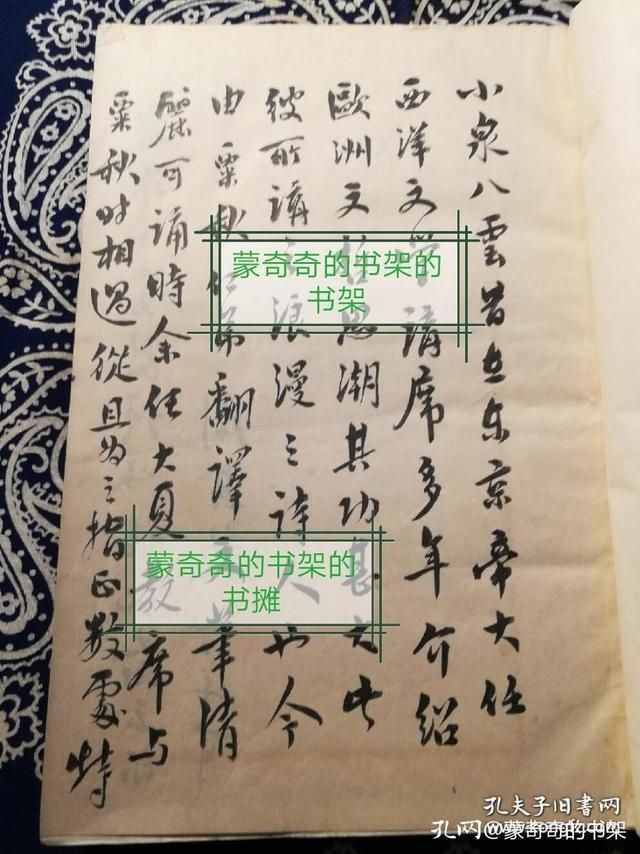 小泉八雲昔在东京帝大任
西洋文學講席多年介紹
歐洲文哲思潮其功甚大此
彼所講之浪漫三詩人也今
由粟秋仁弟翻譯文筆清
麗可誦時余任大夏教席与
粟秋时相過從且为之指正数處特
蒙奇奇的书架的
书架
蒙奇奇的书架的
书摊
孔夫子旧書网
孔网@蒙奇奇的书架